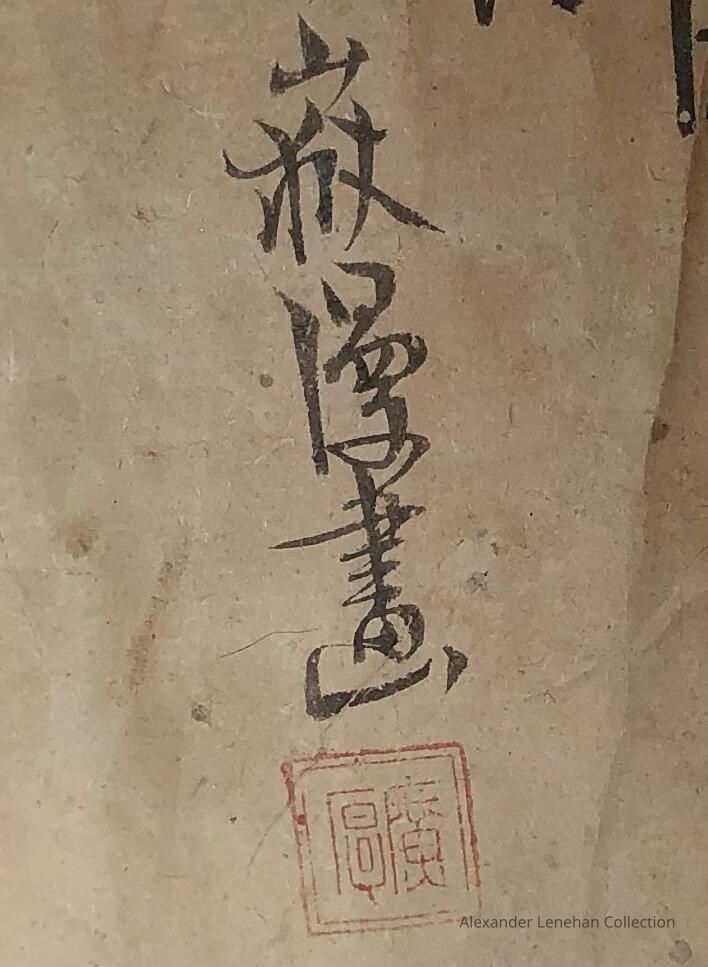 嶽漫畫
廣
Alexander Lenehan Collection